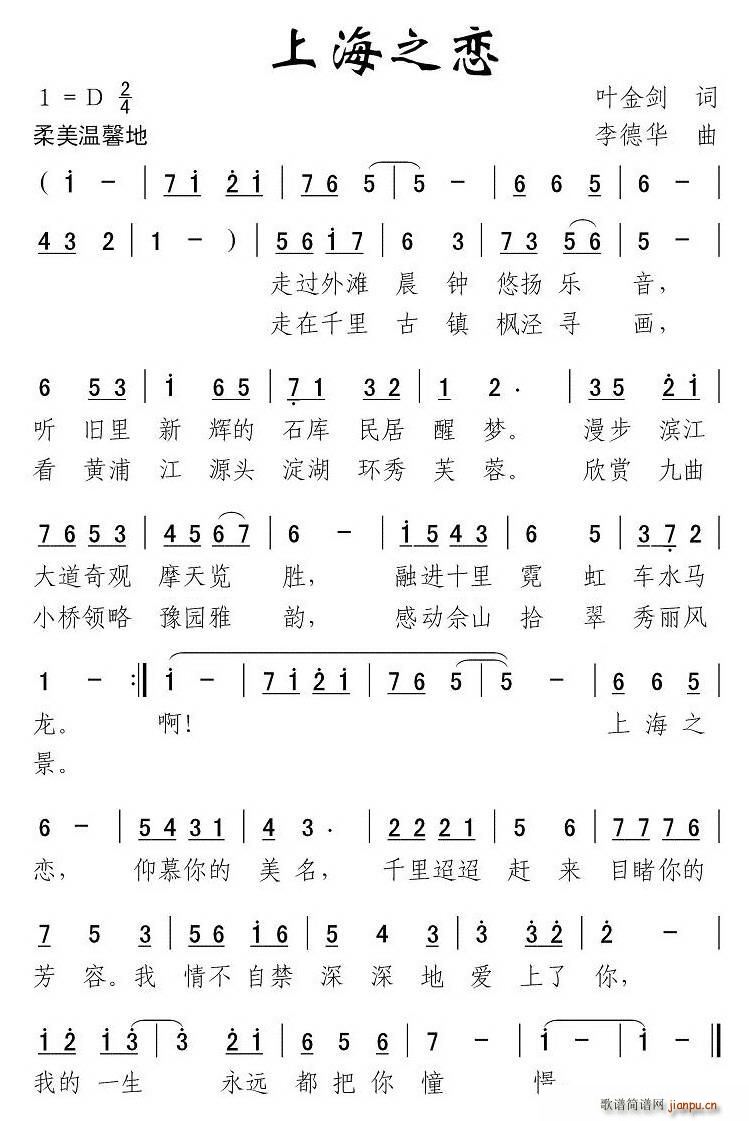 上海之恋
1 = D 2/4
叶金剑 词
柔美温馨地
李德华 曲
( i - | 7 i 2̇ i | 7 6 5 | 5 - | 6 6 5 | 6 - |
4 3 2 | 1 - ) | 5 6 i 7 | 6 3 | 7 3 5 6 | 5 - |
走过外滩 晨 钟 悠扬 乐 音,
走在千里 古 镇 枫泾 寻 画,
6 5 3 | i 6 5 | 7̣ 1 3 2 | 1 2 . | 3 5 2̇ i |
听 旧里 新 辉的 石库 民居 醒 梦。 漫步 滨江
看 黄浦 江 源头 淀湖 环秀 芙 蓉。 欣赏 九曲
7 6 5 3 | 4 5 6 7 | 6 - | i 5 4 3 | 6 5 | 3 7̣ 2 |
大道奇观 摩天览 胜, 融进十里 霓 虹 车水马
小桥领略 豫园雅 韵, 感动佘山 拾 翠 秀丽风
1 - :| i - | 7 i 2̇ i | 7 6 5 | 5 - | 6 6 5 |
龙。 啊! 上 海 之
景。
6 - | 5 4 3 1 | 4 3 . | 2 2 2 2 | 5 6 | 7 7 7 6 |
恋, 仰慕你的 美 名, 千里迢迢 赶 来 目睹你的
7 5 3 | 5 6 i i | 5 4 3 | 3̇ 3̇ 2̇ | 2̇ - |
芳 容。我 情不 自禁 深 深 地 爱 上了 你,
i 2̇ i 3̇ | 3̇ 2̇ i | 6 5 6 | 7 - | i - | i - ||
我的 一生 永远 都 把 你 憧 憬
歌谱简谱网
jianpu.cn